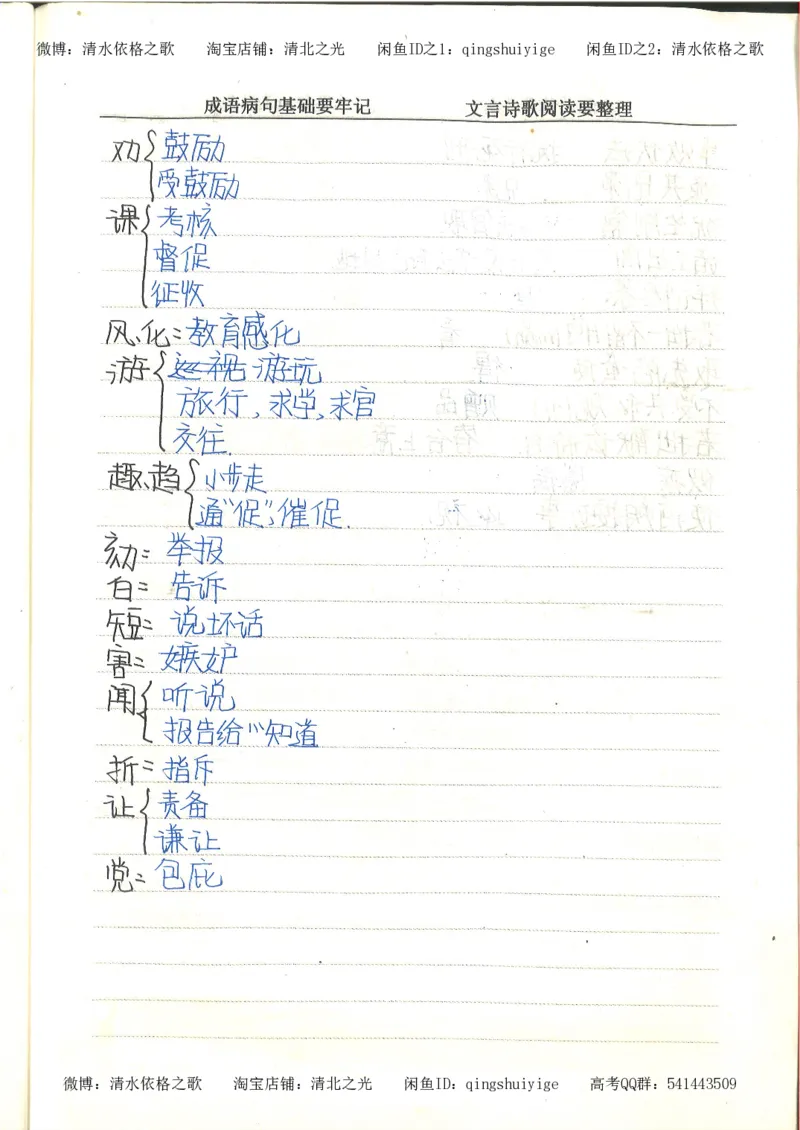 微博：清水依格之歌 淘宝店铺：清北之光 闲鱼ID之1：qingshuiyige 闲鱼ID之2：清水依格之歌
成语病句基础要牢记 文言诗歌阅读要整理
劝{鼓励
受鼓励
课{考核
督促
征收
风、化=教育感化
游{巡视 游玩
旅行，求学，求官
交往.
趣、趋{小步走
通“促”，催促.
劾=举报
白=告诉
短=说坏话
害=嫉妒
闻{听说
报告给…知道
折=指斥
让{责备
谦让
党=包庇
微博：清水依格之歌 淘宝店铺：清北之光 闲鱼ID：qingshuiyige 高考QQ群：541443509